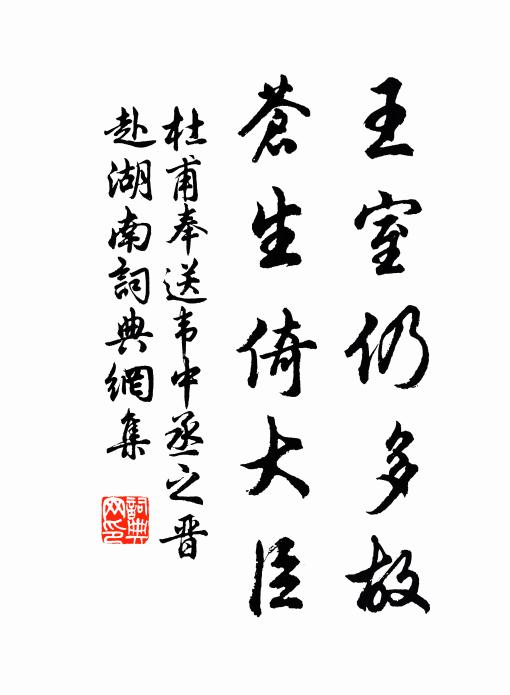 王室仍多故
蒼生倚大臣
杜甫奉送韦中丞之晋
赴湖南詞典網集
詞典
网印